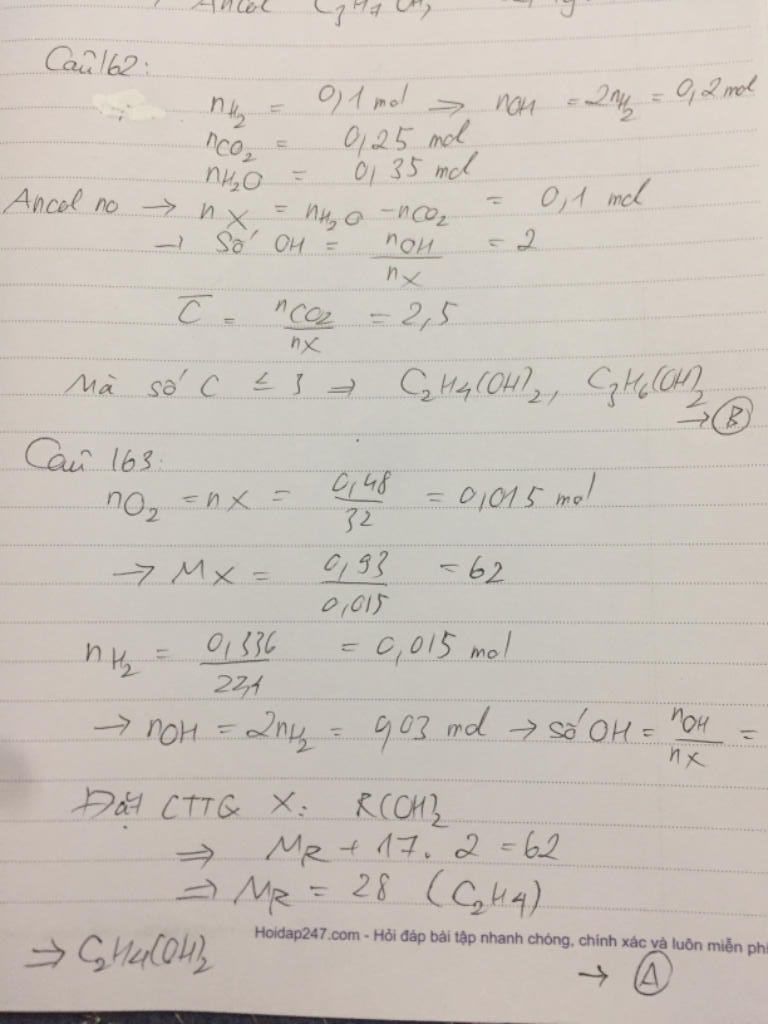 Ancol C₃H₇OH,
Câu 162:
nH₂ = 0,1 mol => nOH = 2nH₂ = 0,2 mol
nCO₂ = 0,25 mol
nH₂O = 0,35 mol
Ancol no → nX = nH₂O - nCO₂ = 0,1 mol
→ Số OH = nOH/nX = 2
C̅ = nCO₂/nX = 2,5
Mà số C ≤ 3 => C₂H₄(OH)₂, C₃H₆(OH)₂
→ B
Câu 163:
nO₂ = nX = 0,48/32 = 0,015 mol
→ MX = 0,93/0,015 = 62
nH₂ = 0,336/22,4 = 0,015 mol
→ nOH = 2nH₂ = 0,03 mol → số OH = nOH/nX =
Đặt CTTQ X: R(OH)₂
=> MR + 17.2 = 62
=> MR = 28 (C₂H₄)
Hoidap247.com - Hỏi đáp bài tập nhanh chóng, chính xác và luôn miễn phí
=> C₂H₄(OH)₂
→ A